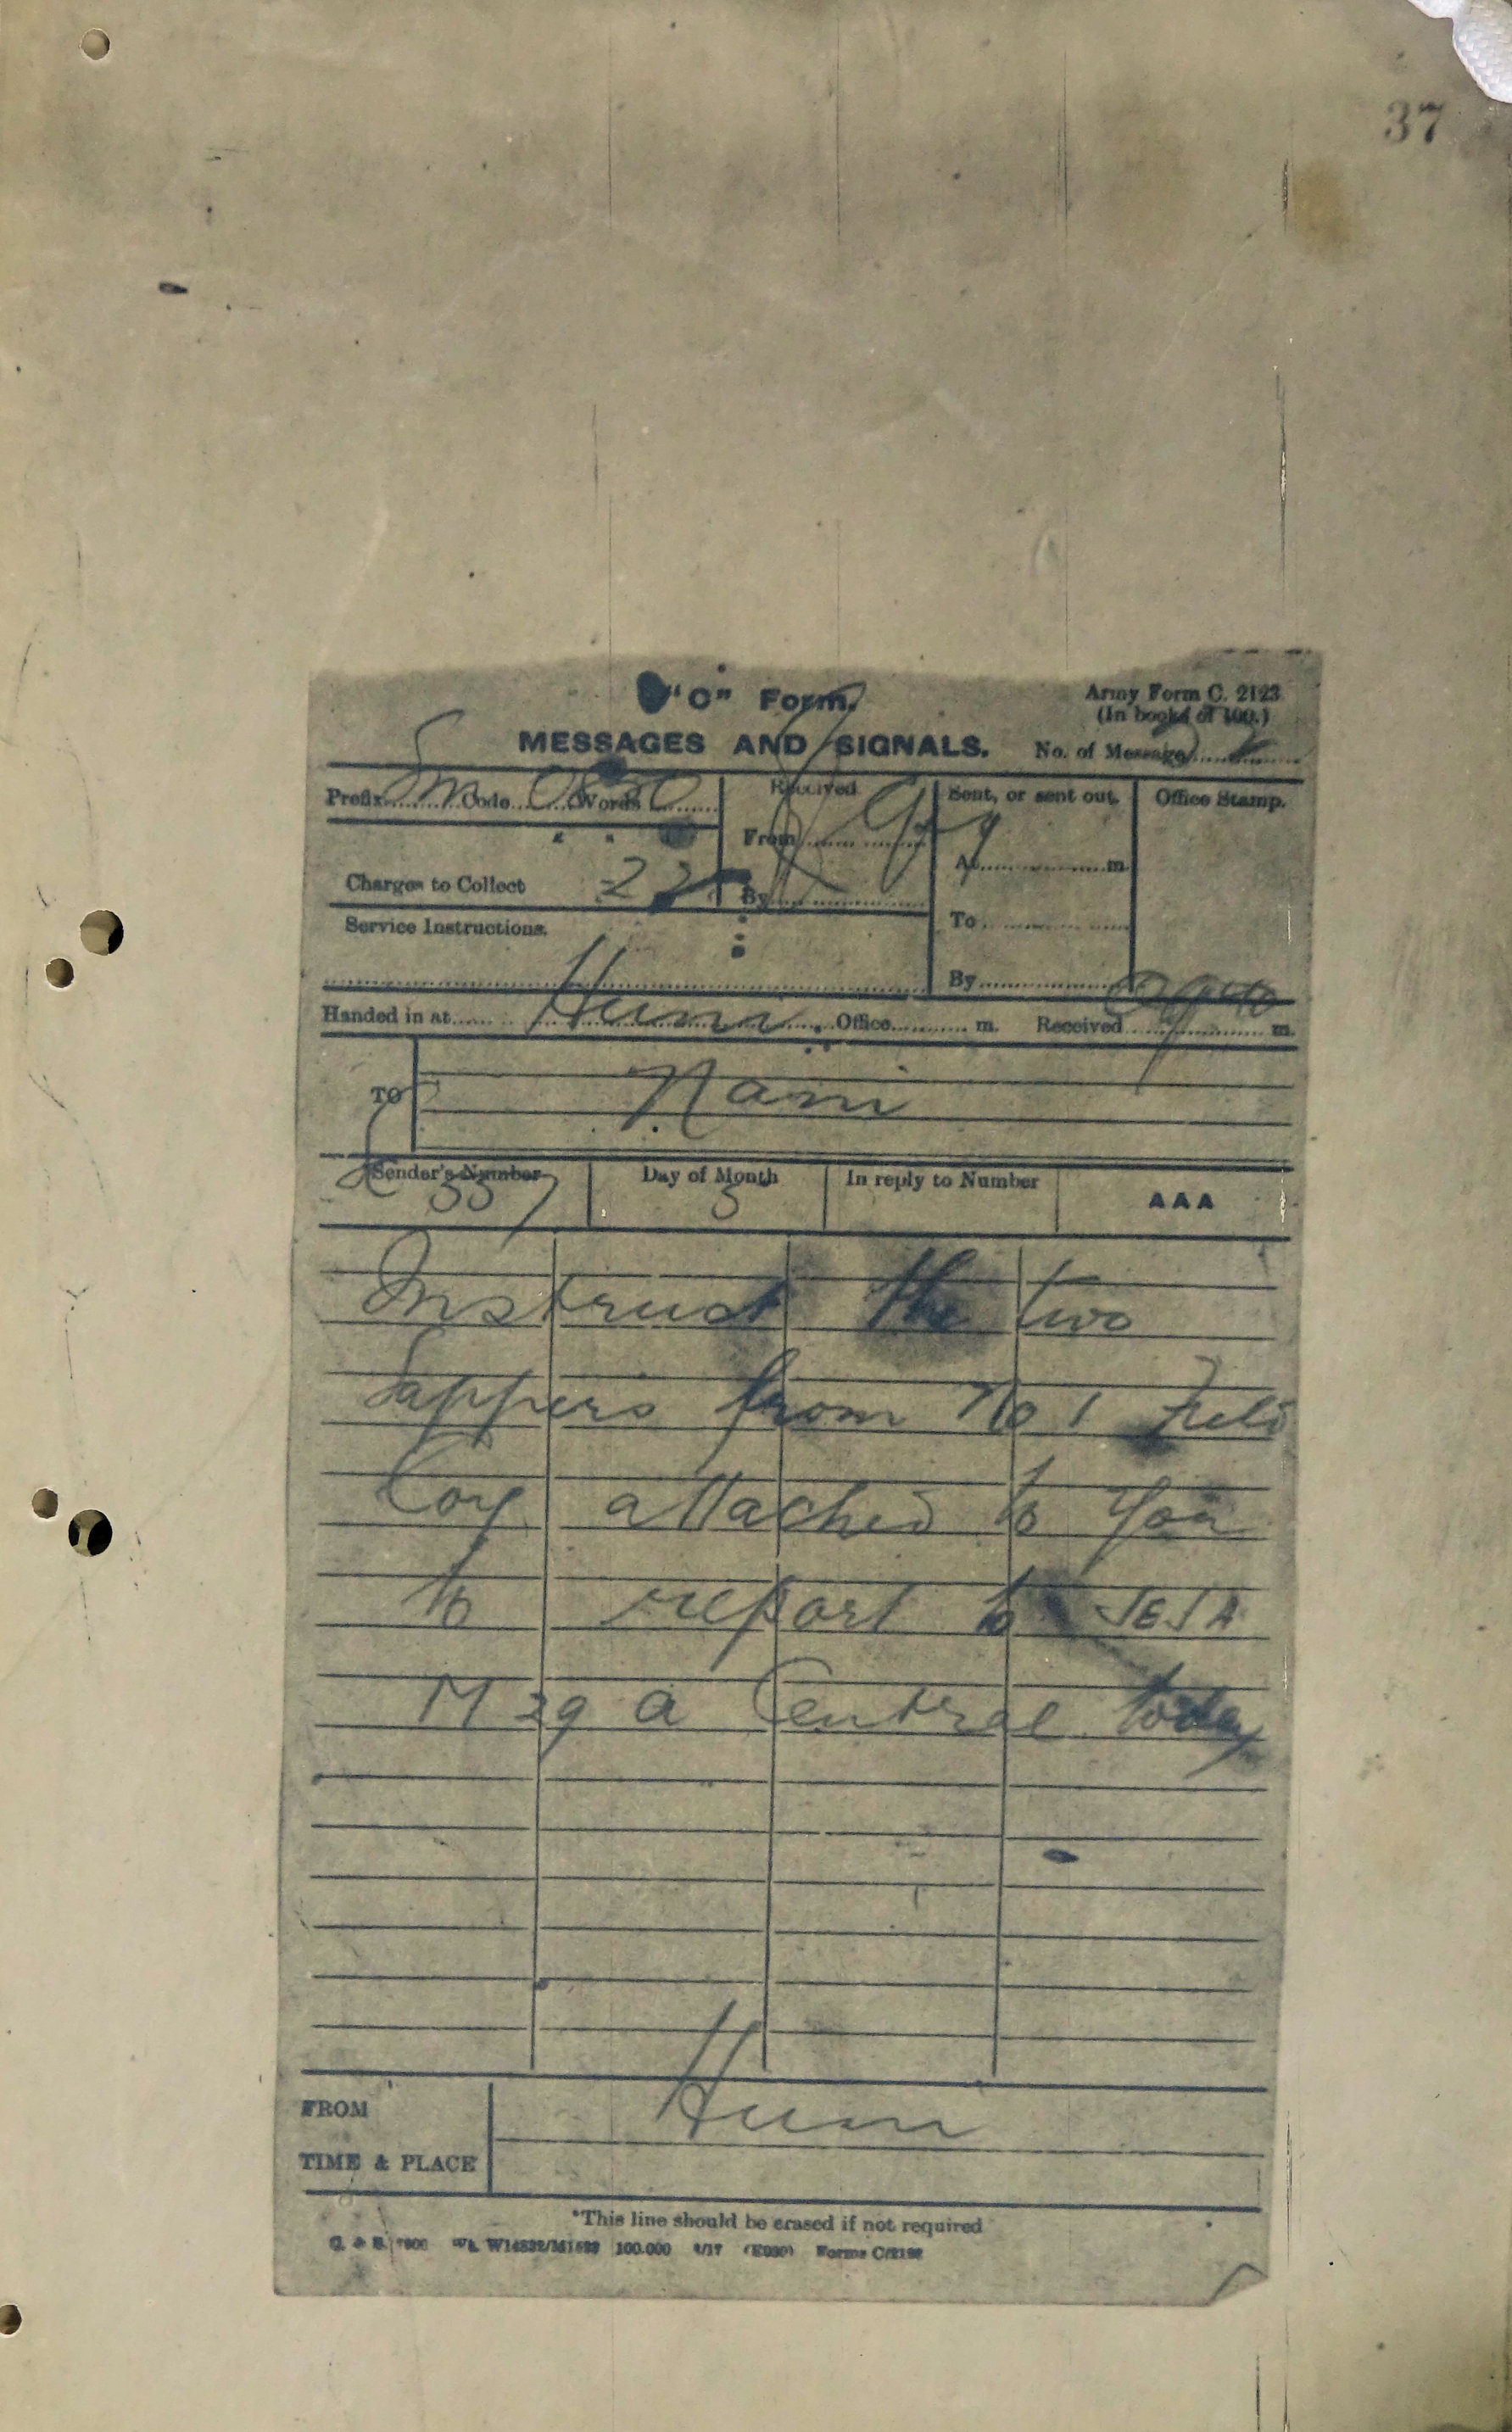 37
"C" Form.
Army Form C. 2123
(In books of 100.)
MESSAGES AND SIGNALS.
No. of Message
Prefix Sm Code 0830 Words
Received
Sent, or sent out.
Office Stamp.
From
At m.
Charges to Collect 22
By
Service Instructions.
To
By
Handed in at Hum Office m. Received 0940 m.
TO Nami
Sender's Number
Day of Month
In reply to Number
AAA
K 357
5
Instruct the two
Sappers from No 1 Field
Coy attached to you
to report to JEJA
M 29 a Central today
FROM Hum
TIME & PLACE
*This line should be erased if not required
100.000